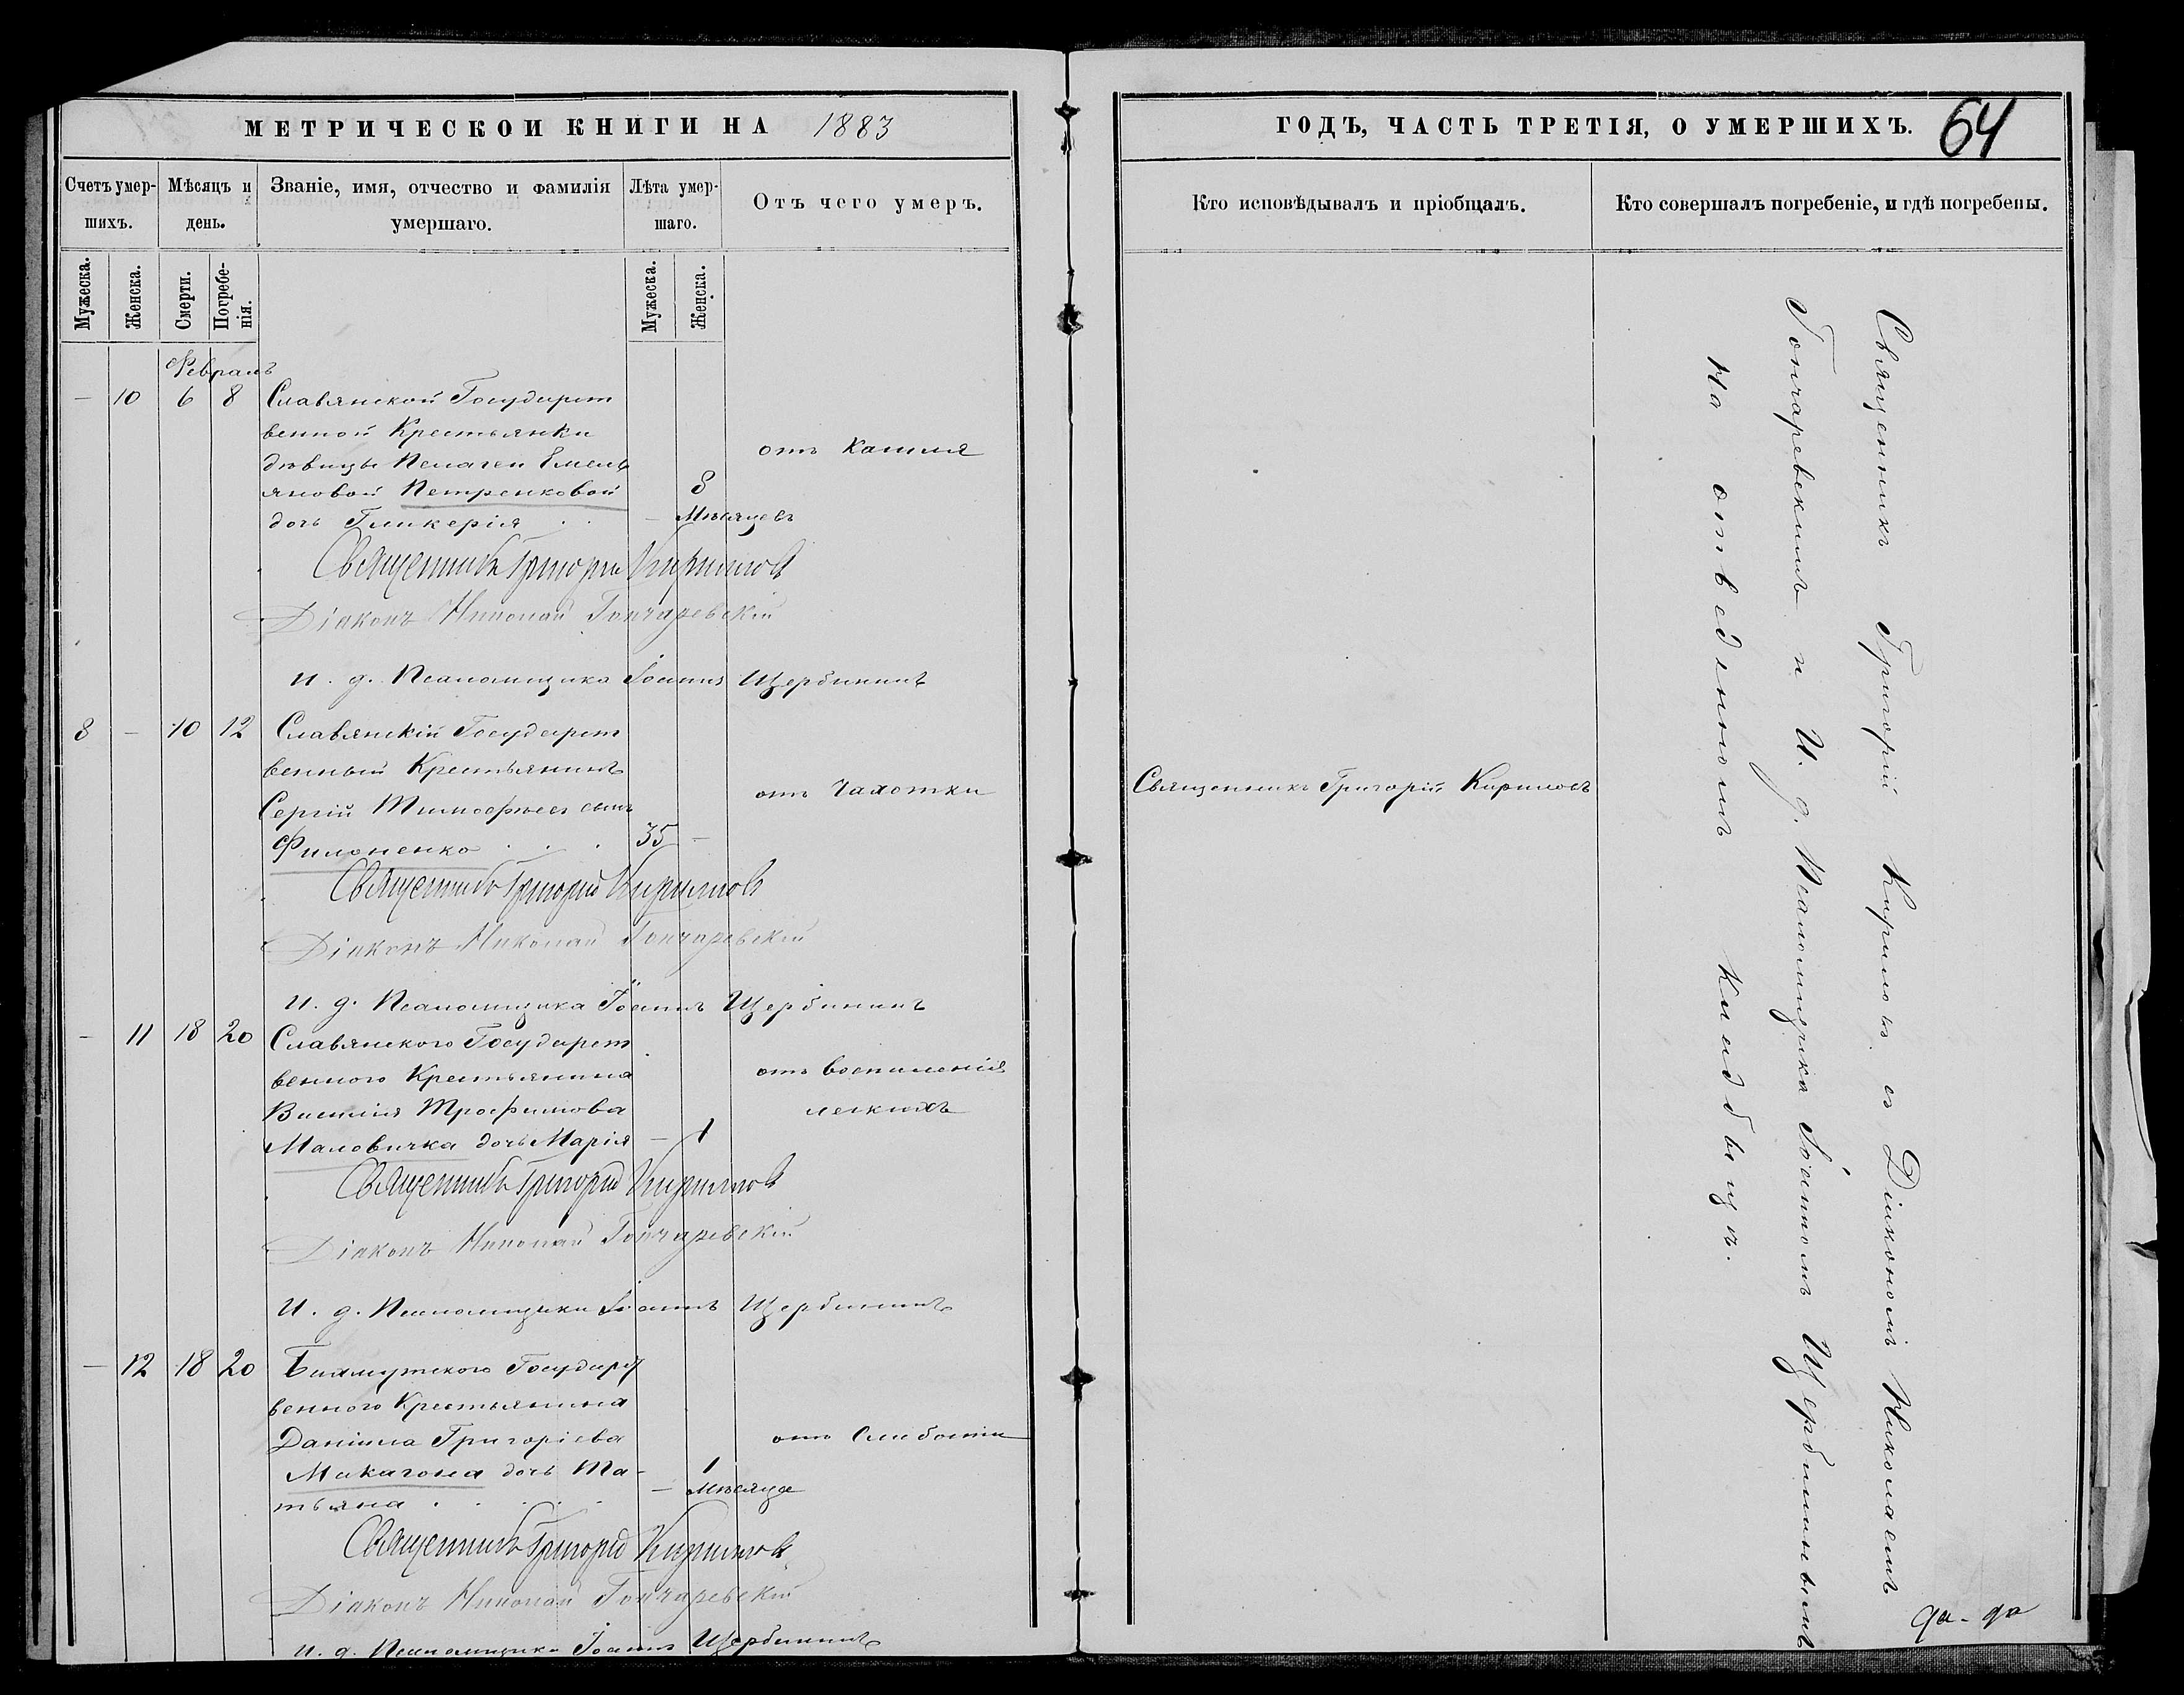 МЕТРИЧЕСКОЙ КНИГИ НА 1883
Счетъ умер-
шихъ.
Мѣсяцъ и
день.
Званіе, имя, отчество и фамилія
умершаго.
Лѣта умер-
шаго.
Отъ чего умеръ.
Мужеска.
Женска.
Смерти.
Погребе-
нія.
Мужеска.
Женска.
Февраль
— 10 6 8 Славянской Государст
венной Крестьянки
дѣвицы Пелагеи Емель
яновой Петренковой
дочь Гликерія . .
— 8
Мѣсяцевъ
отъ Кашля
Священникъ Григорій Кириловъ
Діаконъ Николай Гончаревскій
И. д. Псаломщика Іоаннъ Щербининъ
8 — 10 12 Славянскій Государст
венный Крестьянинъ
Сергій Тимофѣевъ сынъ
Филоненко . . . 35 —
отъ Чахотки
Священникъ Григорій Кириловъ
Діаконъ Николай Гончаревскій
И. д. Псаломщика Іоаннъ Щербининъ
— 11 18 20 Славянского Государст
венного Крестьянина
Василія Трофимова
Маловичка дочь Марія — 1
отъ воспаленія
легкихъ
Священникъ Григорій Кириловъ
Діаконъ Николай Гончаревскій
И. д. Псаломщика Іоаннъ Щербининъ
— 12 18 20 Бахмутского Государст
венного Крестьянина
Даніила Григоріева
Макагона дочь Та-
тьяна . . . . .
— 1
Мѣсяца
отъ Слабости
Священникъ Григорій Кириловъ
Діаконъ Николай Гончаревскій
И. д. Псаломщика Іоаннъ Щербининъ
ГОДЪ, ЧАСТЬ ТРЕТІЯ, О УМЕРШИХЪ. 64
Кто исповѣдывалъ и пріобщалъ.
Кто совершалъ погребеніе, и гдѣ погребены.
Священникъ Григорій Кириловъ
Священникъ Григорій Кириловъ съ Діакономъ Николаемъ
Гончаревскимъ и И. д. Псаломщика Іоанномъ Щербининымъ
На отведенномъ Кладбищѣ.